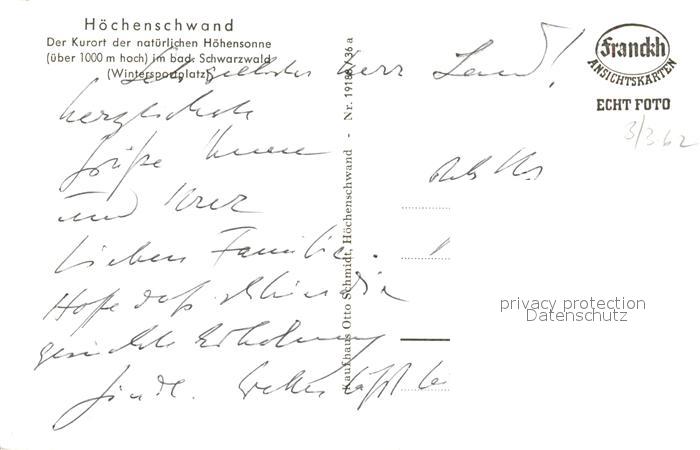 Höchenschwand
Der Kurort der natürlichen Höhensonne
(über 1000 m hoch) im bad. Schwarzwald
(Wintersportplatz)
Franckh
ANSICHTSKARTEN
ECHT FOTO
3/3 62
Kaufhaus Otto Schmidt, Höchenschwand - Nr. 19186/36 a
Herr
herzlichste
Grüße Ihnen
und Ihrer
Lieben Familie.
Hoffe daß
Erholung
finde. Wetter läßt
privacy protection
Datenschutz